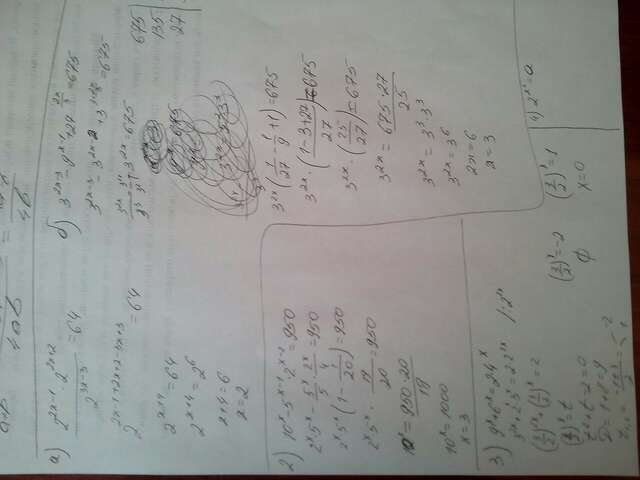 а)
2^(2x-1) · 2^(x+2)
2^(2x-3)
= 64
2^(2x-1+x+2-2x+3) = 64
2^(x+4) = 64
2^(x+4) = 2^6
x+4 = 6
x = 2
б) 3^(2x-3) - 9^(x-1) + 27^(2x/3) = 675
3^(2x-3) - 3^(2x-2) + 3^(2x) = 675
675
135
27
3^(2x) (1/27 - 1/9 + 1) = 675
3^(2x) · (1-3+27)/27 = 675
3^(2x) · (25/27) = 675
3^(2x) = 675·27/25
3^(2x) = 3^3 · 3^3
3^(2x) = 3^6
2x = 6
x = 3
2) 10^x - 5^(x-1) · 2^(x-2) = 950
2^x·5^x - 5^x/5 · 2^x/4 = 950
2^x·5^x · (1 - 1/20) = 950
2^x·5^x · 19/20 = 950
10^x = 950·20/19
10^x = 1000
x = 3
3) 9^x + 6^x = 2·4^x
3^(2x) + 2^x·3^x = 2·2^(2x) /:2^(2x)
(3/2)^(2x) + (3/2)^x = 2
(3/2)^x = t
t^2 + t - 2 = 0
D = 1+8 = 9
(3/2)^x = -2
∅
(3/2)^x = 1
x = 0
4) 2^x = a